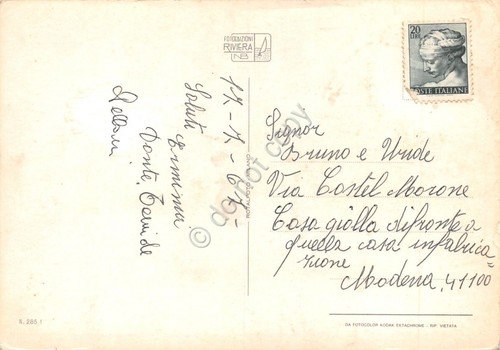 FOTOEDIZIONI
RIVIERA
NB
20
LIRE
POSTE ITALIANE
17-7-67-
Saluti Erminia
Dante, Davide
Signor
Bruno e
Via Castel Morone
Casa gialla difronte a
quella casa infabrica=
zione
Modena, 41100
do not copy
N. 285 I
DA FOTOCOLOR KODAK EKTACHROME - RIP. VIETATA